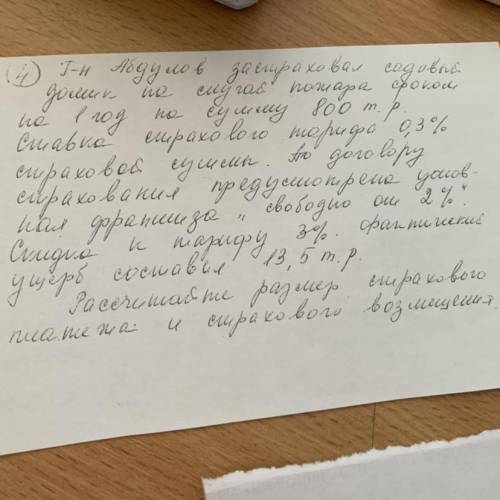 (4) Г-н Абдулов застраховал садовый
домик на случай пожара сроком
на 1 год на сумму 800 т.р.
Ставка страхового тарифа 0,3%
страховой суммы. По договору
страхования предусмотрена услов-
ная франшиза „свободно от 2%“.
Скидка к тарифу 3%. фактический
ущерб составил 13,5 т.р.
Рассчитайте размер страхового
платежа и страхового возмещения.